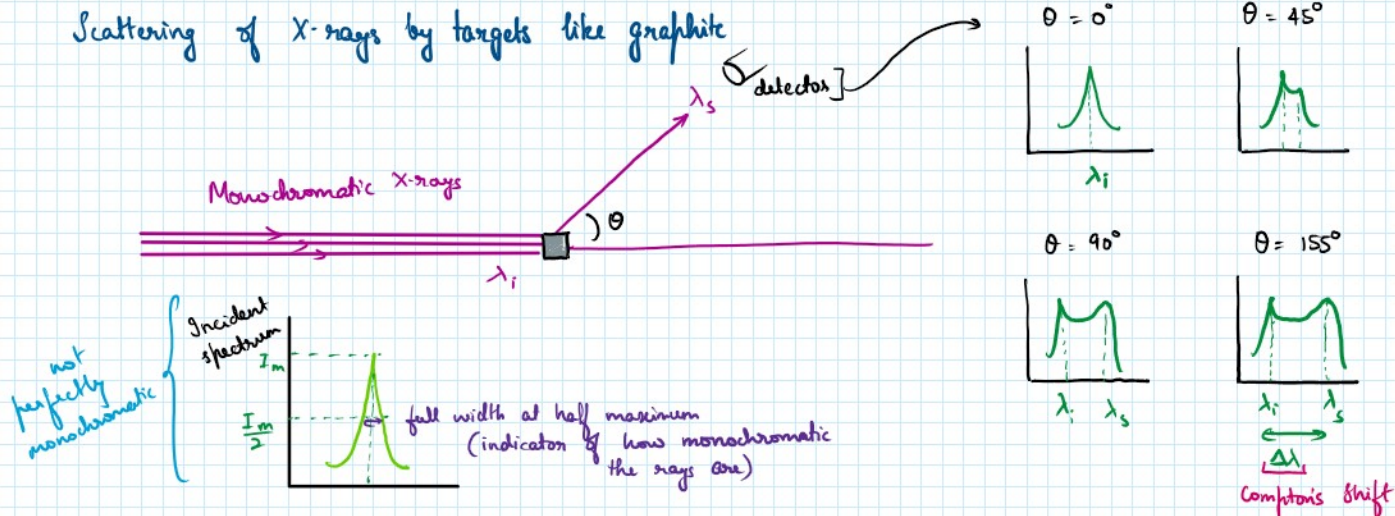 Scattering of X-rays by targets like graphite
detector]
λs
Monochromatic X-rays
θ
λi
not
perfectly
monochromatic
Incident
spectrum
Im
Im/2
full width at half maximum
(indicator of how monochromatic
the rays are)
θ = 0°
λi
θ = 45°
θ = 90°
λi λs
θ = 155°
λi λs
Δλ
Compton's Shift